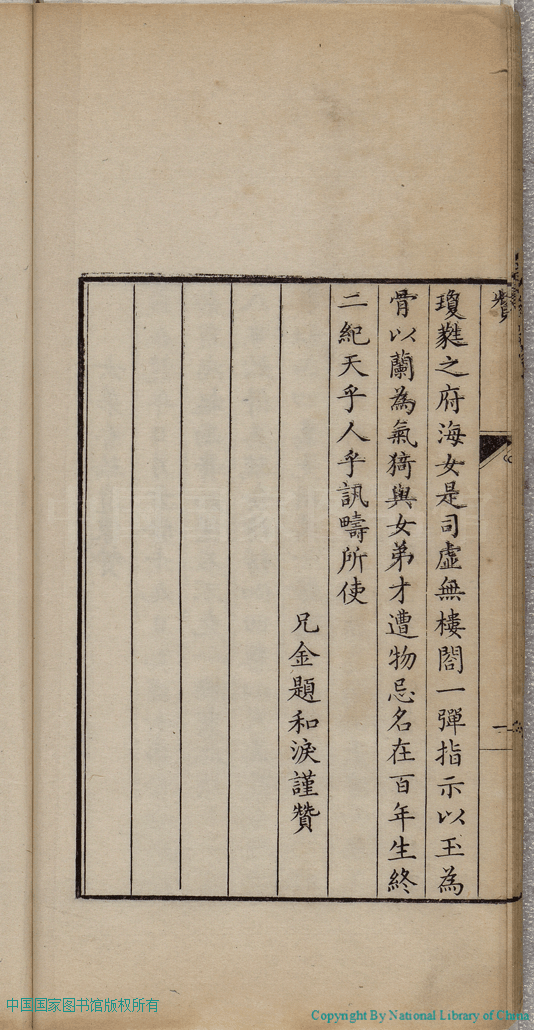 瓊蕤之府海女是司虛無樓閣一彈指示以玉為
骨以蘭為氣猗與女弟才遭物忌名在百年生終
二紀天乎人乎訊疇所使
兄金題和淚謹贊
中国国家图书馆版权所有
Copyright By National Library of China